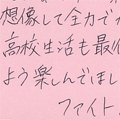 想像して全力で
高校生活も最
よう楽しんでほし
ファイト